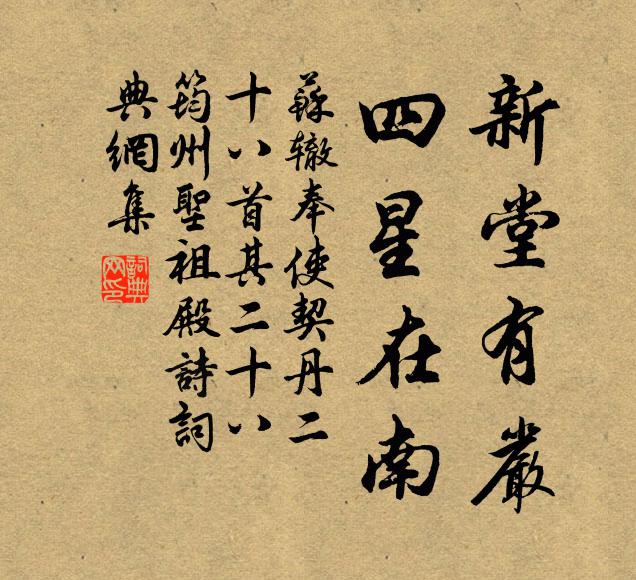 新堂有嚴
四星在南
蘇轍奉使契丹二
十八首其二十八
筠州聖祖殿詩詞
典網集
詞典網印